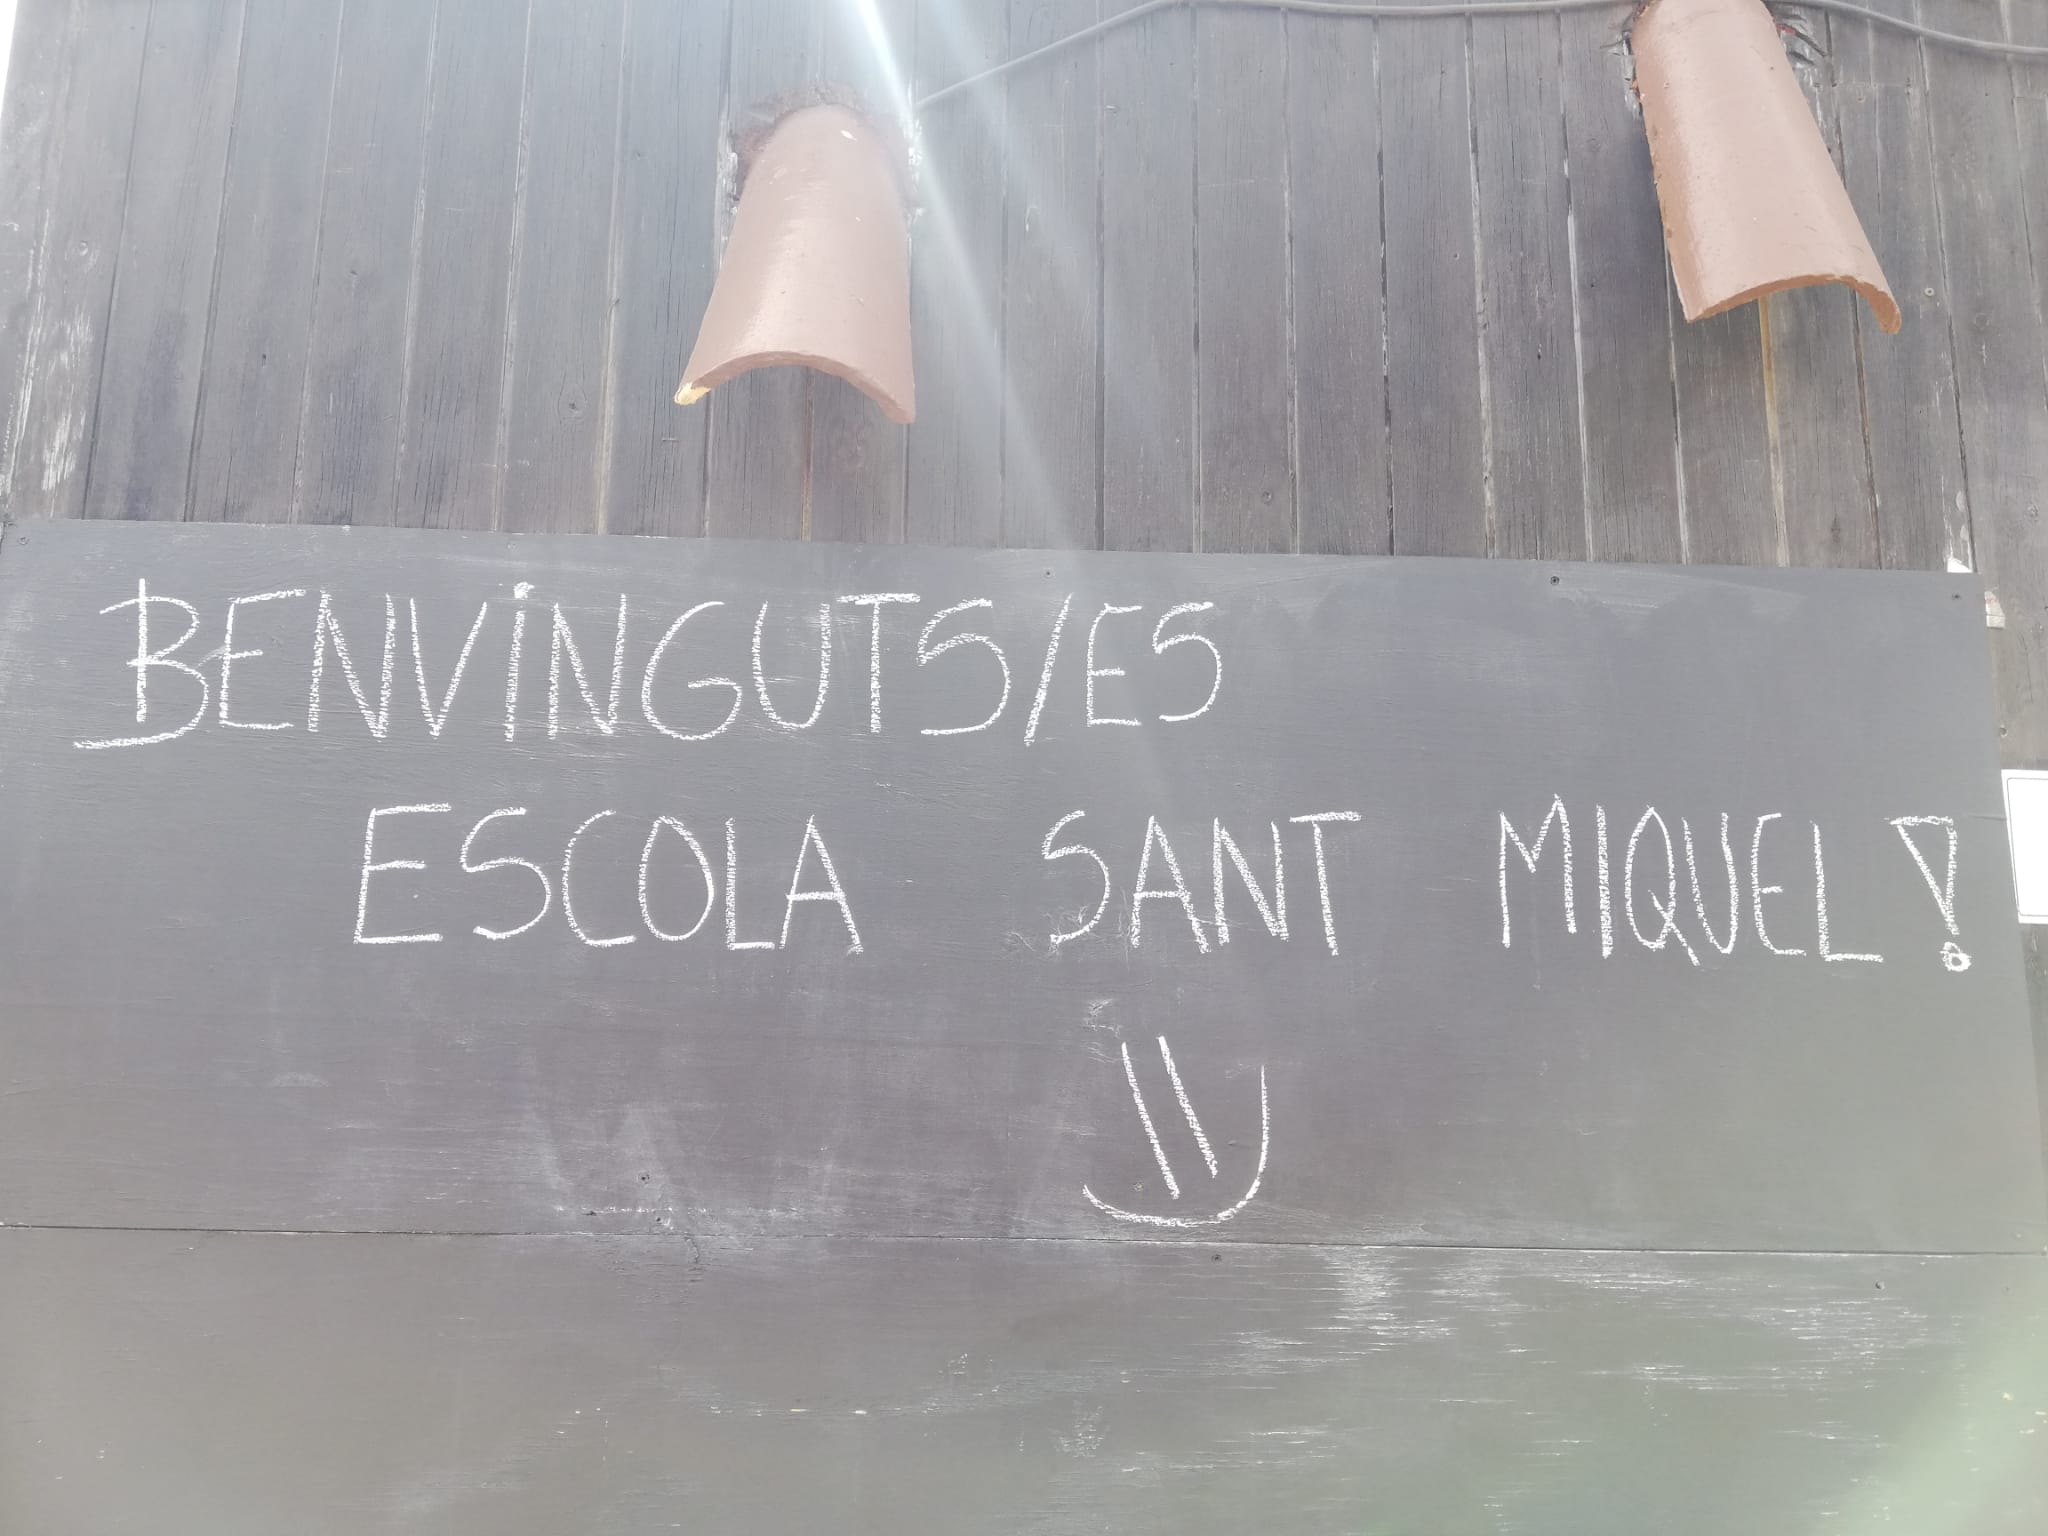 BENVINGUTS/ES
ESCOLA SANT MIQUEL!